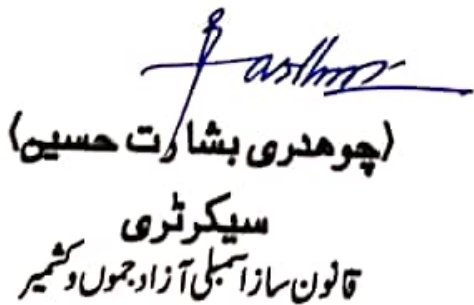 (چوهدری بشارت حسین)
سیکرٹری
قانون ساز اسمبلی آزاد جموں و کشمیر